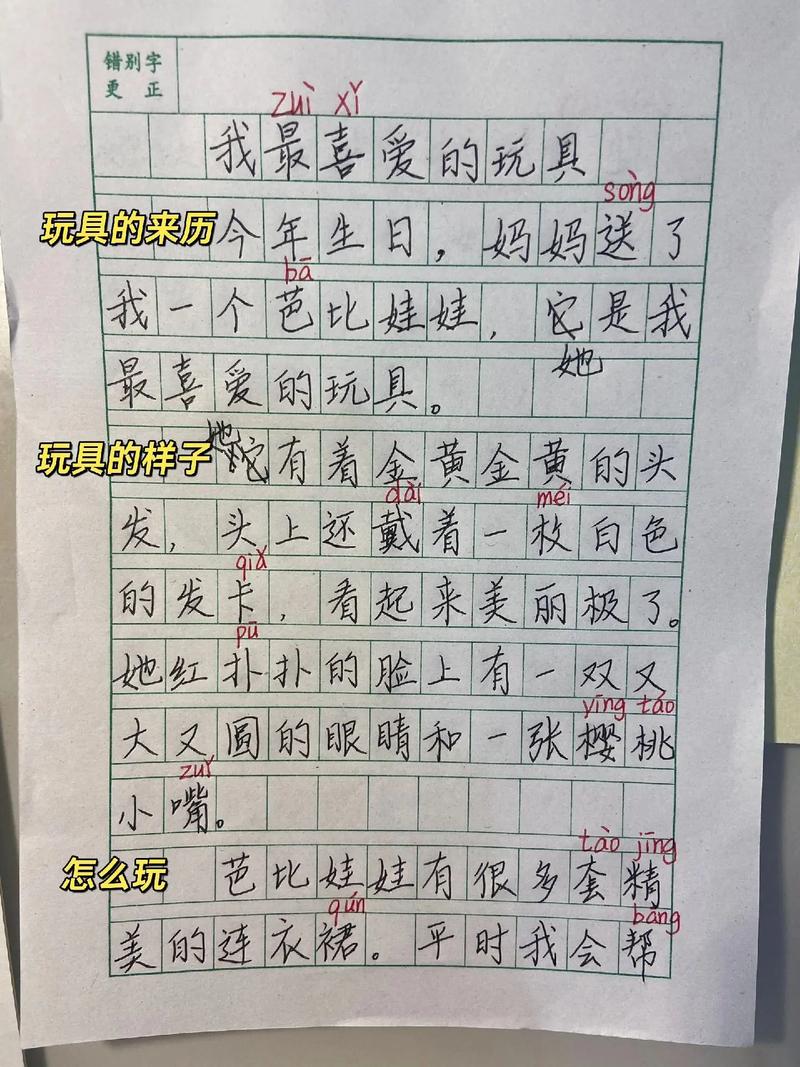 错别字
更正
zuì xǐ
我最喜爱的玩具
sòng
玩具的来历
今年生日，妈妈送了
bā
我一个芭比娃娃，它是我
她
最喜爱的玩具。
她
玩具的样子
它有着金黄金黄的头
dài méi
发，头上还戴着一枚白色
qiǎ
的发卡，看起来美丽极了。
pū
她红扑扑的脸上有一双又
yīng táo
大又圆的眼睛和一张樱桃
zuǐ
小嘴。
tào jīng
怎么玩
芭比娃娃有很多套精
qún bāng
美的连衣裙。平时我会帮